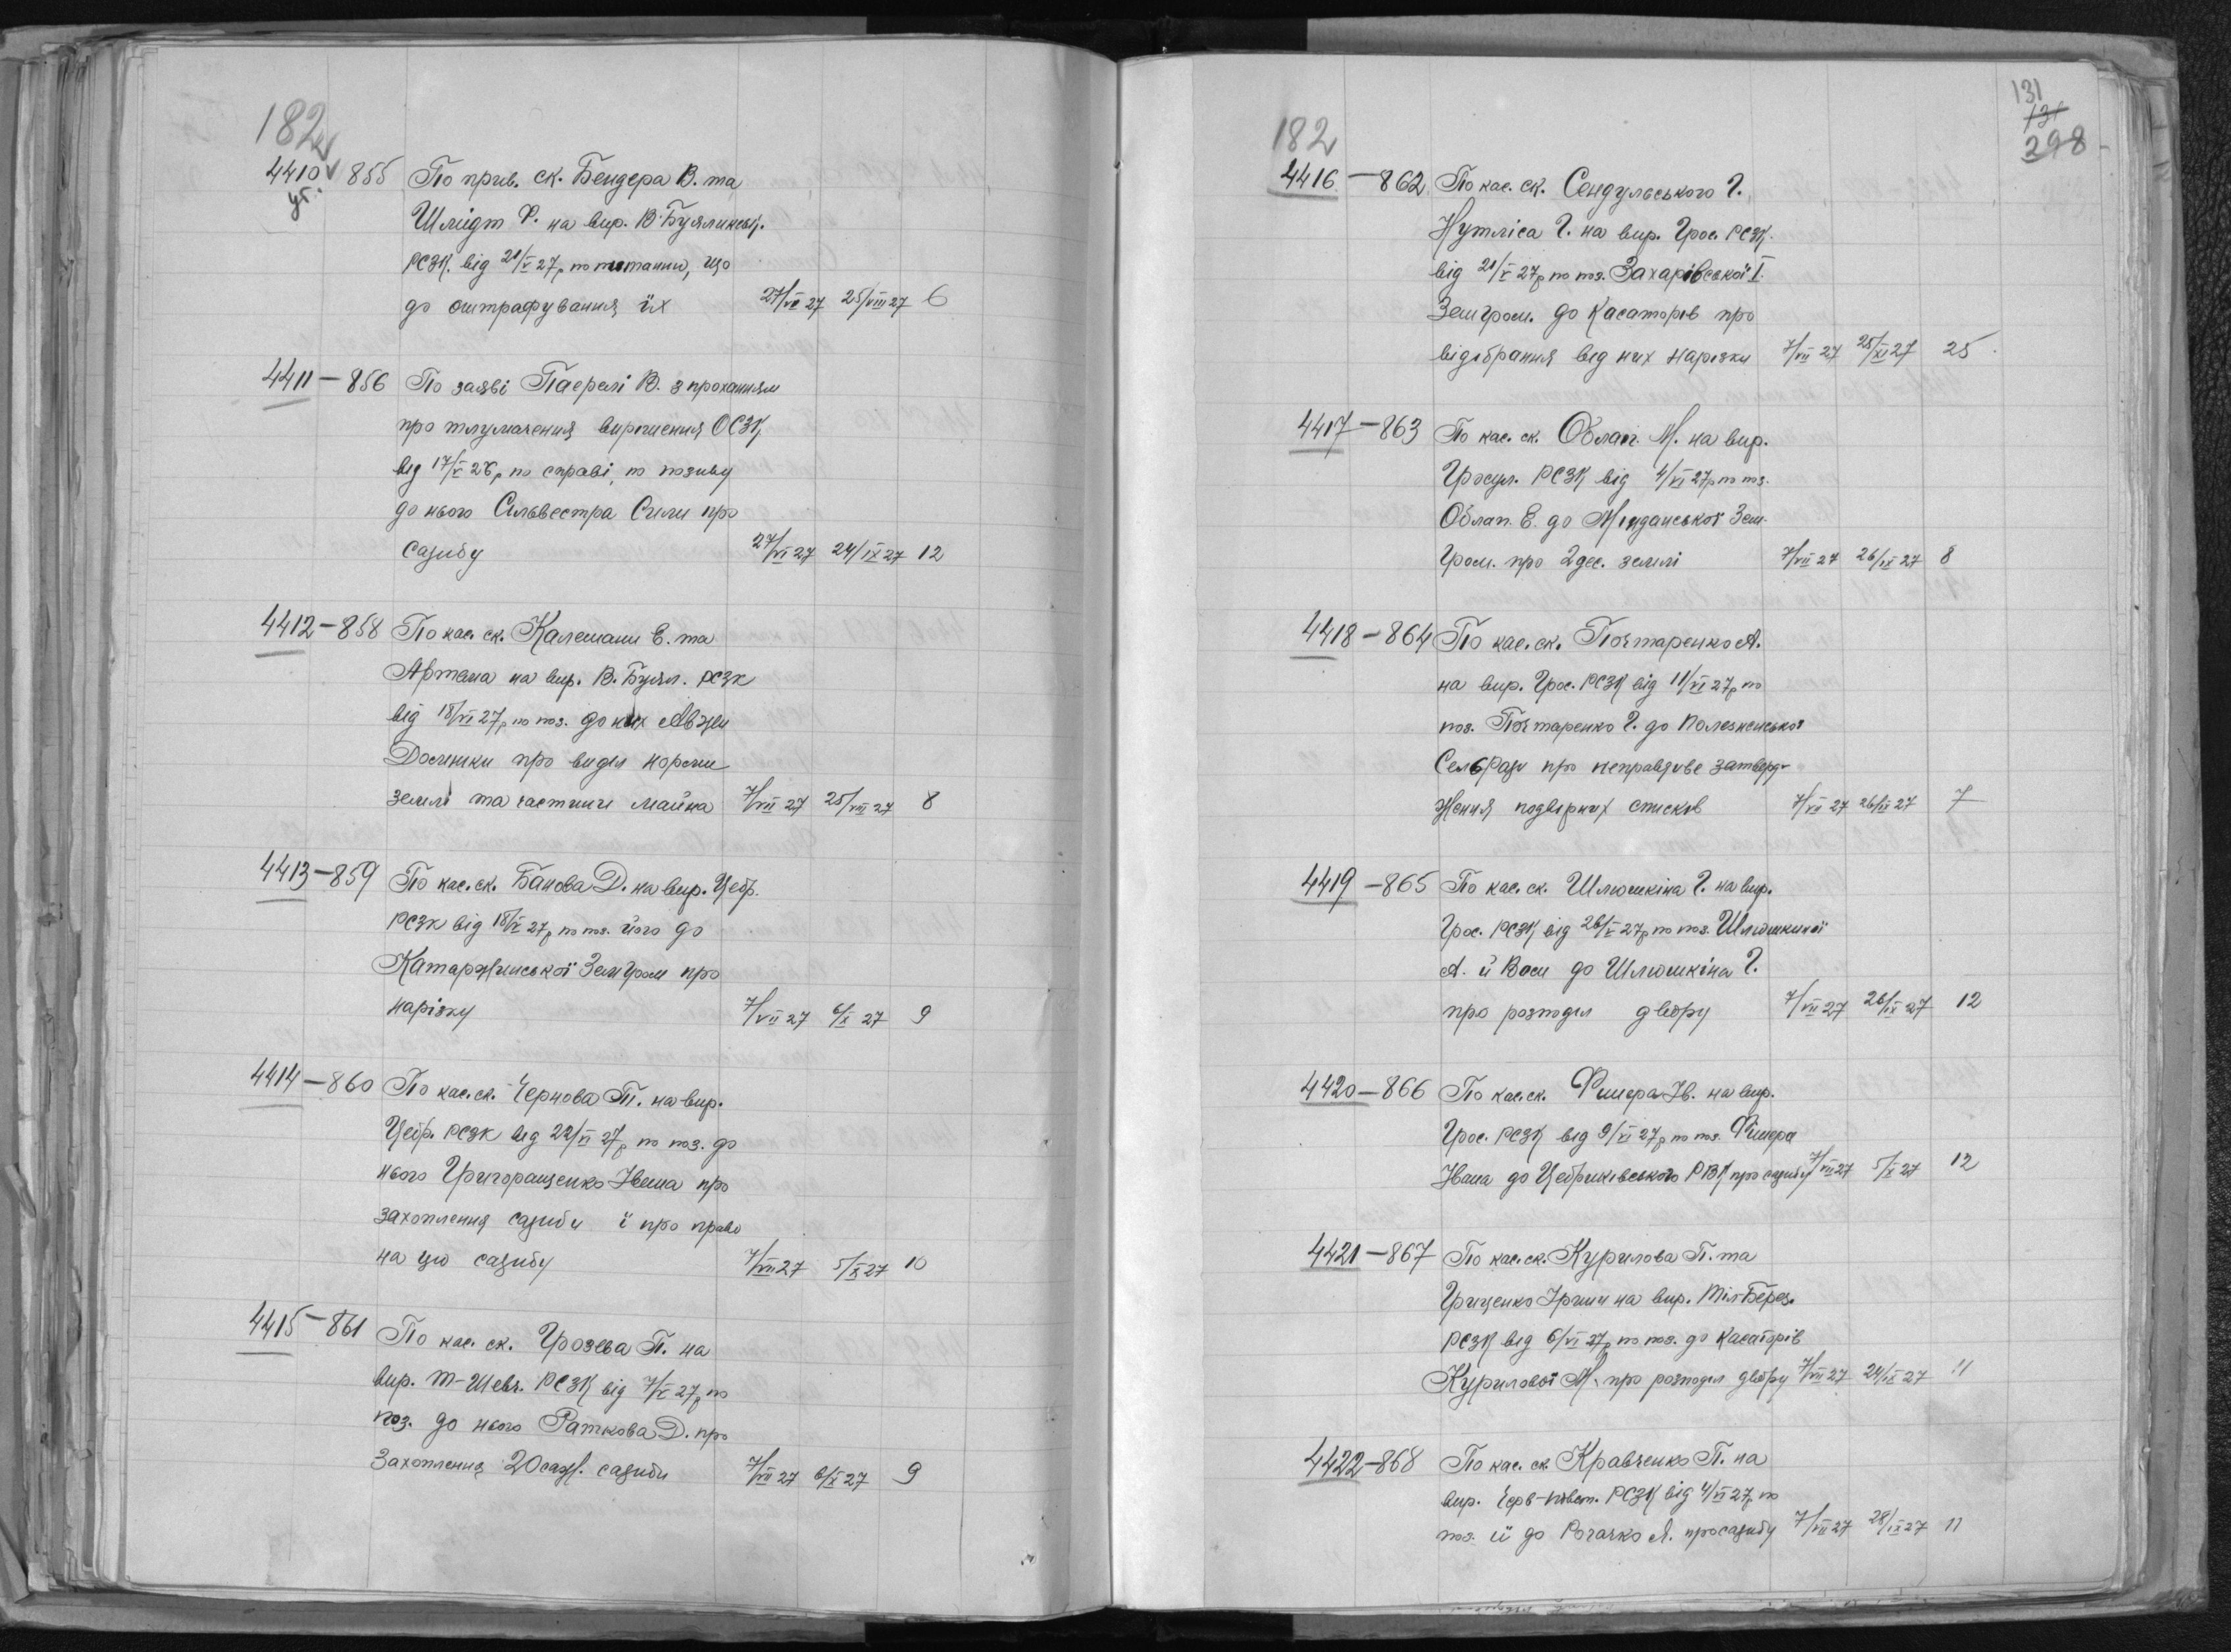 182
4410 855 По прив. ск. Бендера В. та
уг. Шмідт Ф. на вир. В Буялинськ.
РСЗК. від 21/V 27р по питанню, що
до оштрафування їх 27/VI 27 25/VIII 27 6
4411 — 856 По заяві Паералі В. з проханням
про тлумачення вирішення ОСЗК
від 17/V 26р по справі, по позиву
до нього Сильвестра Сили про
садибу 27/VI 27 24/IX 27 12
4412 — 858 По кас. ск. Калемани Е. та
Артема на вир. В. Буял. РСЗК
від 18/VI 27р по поз. до них
про виділ норми
землі та частини майна 7/VII 27 25/VIII 27 8
4413 — 859 По кас. ск. Банова Д. на вир. Цебр.
РСЗК від 18/V 27р по поз. його до
Катаржинської Земгром про
нарізку 7/VII 27 6/X 27 9
4414 — 860 По кас. ск. Чернова П. на вир.
Цебр. РСЗК від 22/VI 27р по поз. до
нього Григоращенко Івана про
захоплення садиби і про право
на цю садибу 7/VII 27 5/X 27 10
4415 — 861 По кас. ск. Грозева П. на
вир. Т-Шевч. РСЗК від 7/V 27р по
поз. до нього Раткова Д. про
Захоплення 20 саж. садиби 7/VII 27 6/X 27 9
131
131
298
182
4416 — 862 По кас. ск. Сендульського Г.
Нутліса Г. на вир. Грос. РСЗК.
від 21/V 27р по поз. Захарівської І.
Земгром. до Касаторів про
відібрання від них нарізки 7/VII 27 25/XI 27 25
4417 — 863 По кас. ск. Облап. М. на вир.
Гросул. РСЗК від 4/VI 27р по поз.
Облап. Е. до Зем-
Гром. про 2 дес. землі 7/VII 27 26/IX 27 8
4418 — 864 По кас. ск. Почтаренко А.
на вир. Грос. РСЗК від 11/VI 27р по
поз. Почтаренко Г. до
СельРади про неправдиве затверд-
ження подвірних списків 7/VII 27 26/IX 27 7
4419 — 865 По кас. ск. Шлюшкіна Г. на вир.
Грос. РСЗК від 26/V 27р по поз. Шлюшкиної
А. й Васи до Шлюшкіна Г.
про розподіл двору 7/VII 27 26/IX 27 12
4420 — 866 По кас. ск. Фишера Ів. на вир.
Грос. РСЗК від 9/VI 27р по поз. Фішера
Івана до Цебриківського РВК про садибу 7/VII 27 5/X 27 12
4421 — 867 По кас. ск. Курилова П. та
Гриценко Ірини на вир. Тіл-Берез.
РСЗК від 6/VI 27р по поз. до касаторів
Курилової М. про розподіл двору 7/VII 27 24/IX 27 11
4422 — 868 По кас. ск. Кравченко П. на
вир. Черв-повст. РСЗК від 4/VI 27р по
поз. її до Рогачко Я. про садибу 7/VII 27 28/IX 27 11